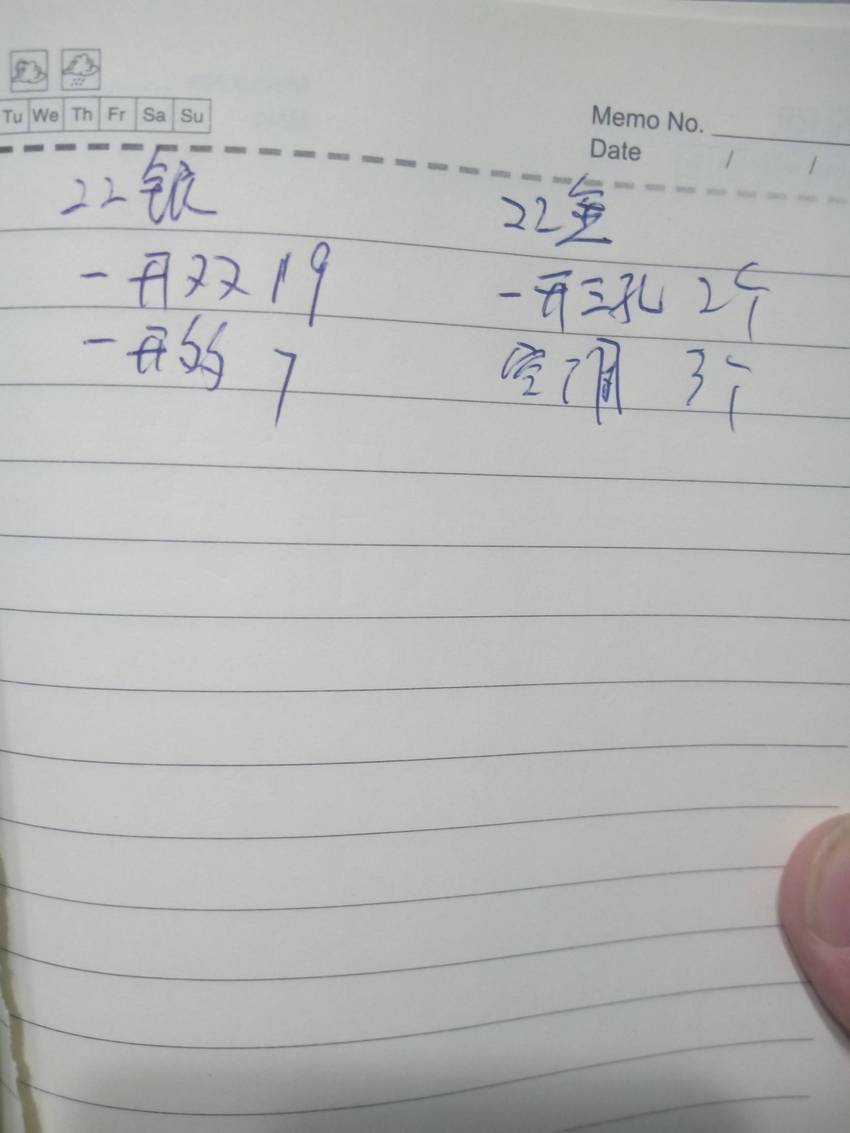 Tu We Th Fr Sa Su
Memo No.
Date / /
22银
一开双 19
一开 7
22金
一开三孔 2个
空调 3个